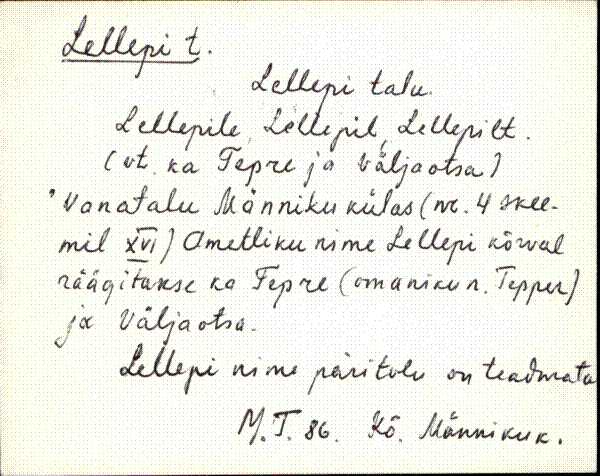 Lellepi t.
Lellepi talu.
Lellepile, Lellepil, Lellepilt.
(vt. ka Tepre ja Väljaotsa)
Vanatalu Männiku külas (nr. 4 skee-
mil XVI) Ametliku nime Lellepi kõrval
räägitakse ka Tepre (omaniku n. Tepper)
ja Väljaotsa.
Lellepi nime päritolu on teadmata
M.T. 86. Kõ. Männiku k.